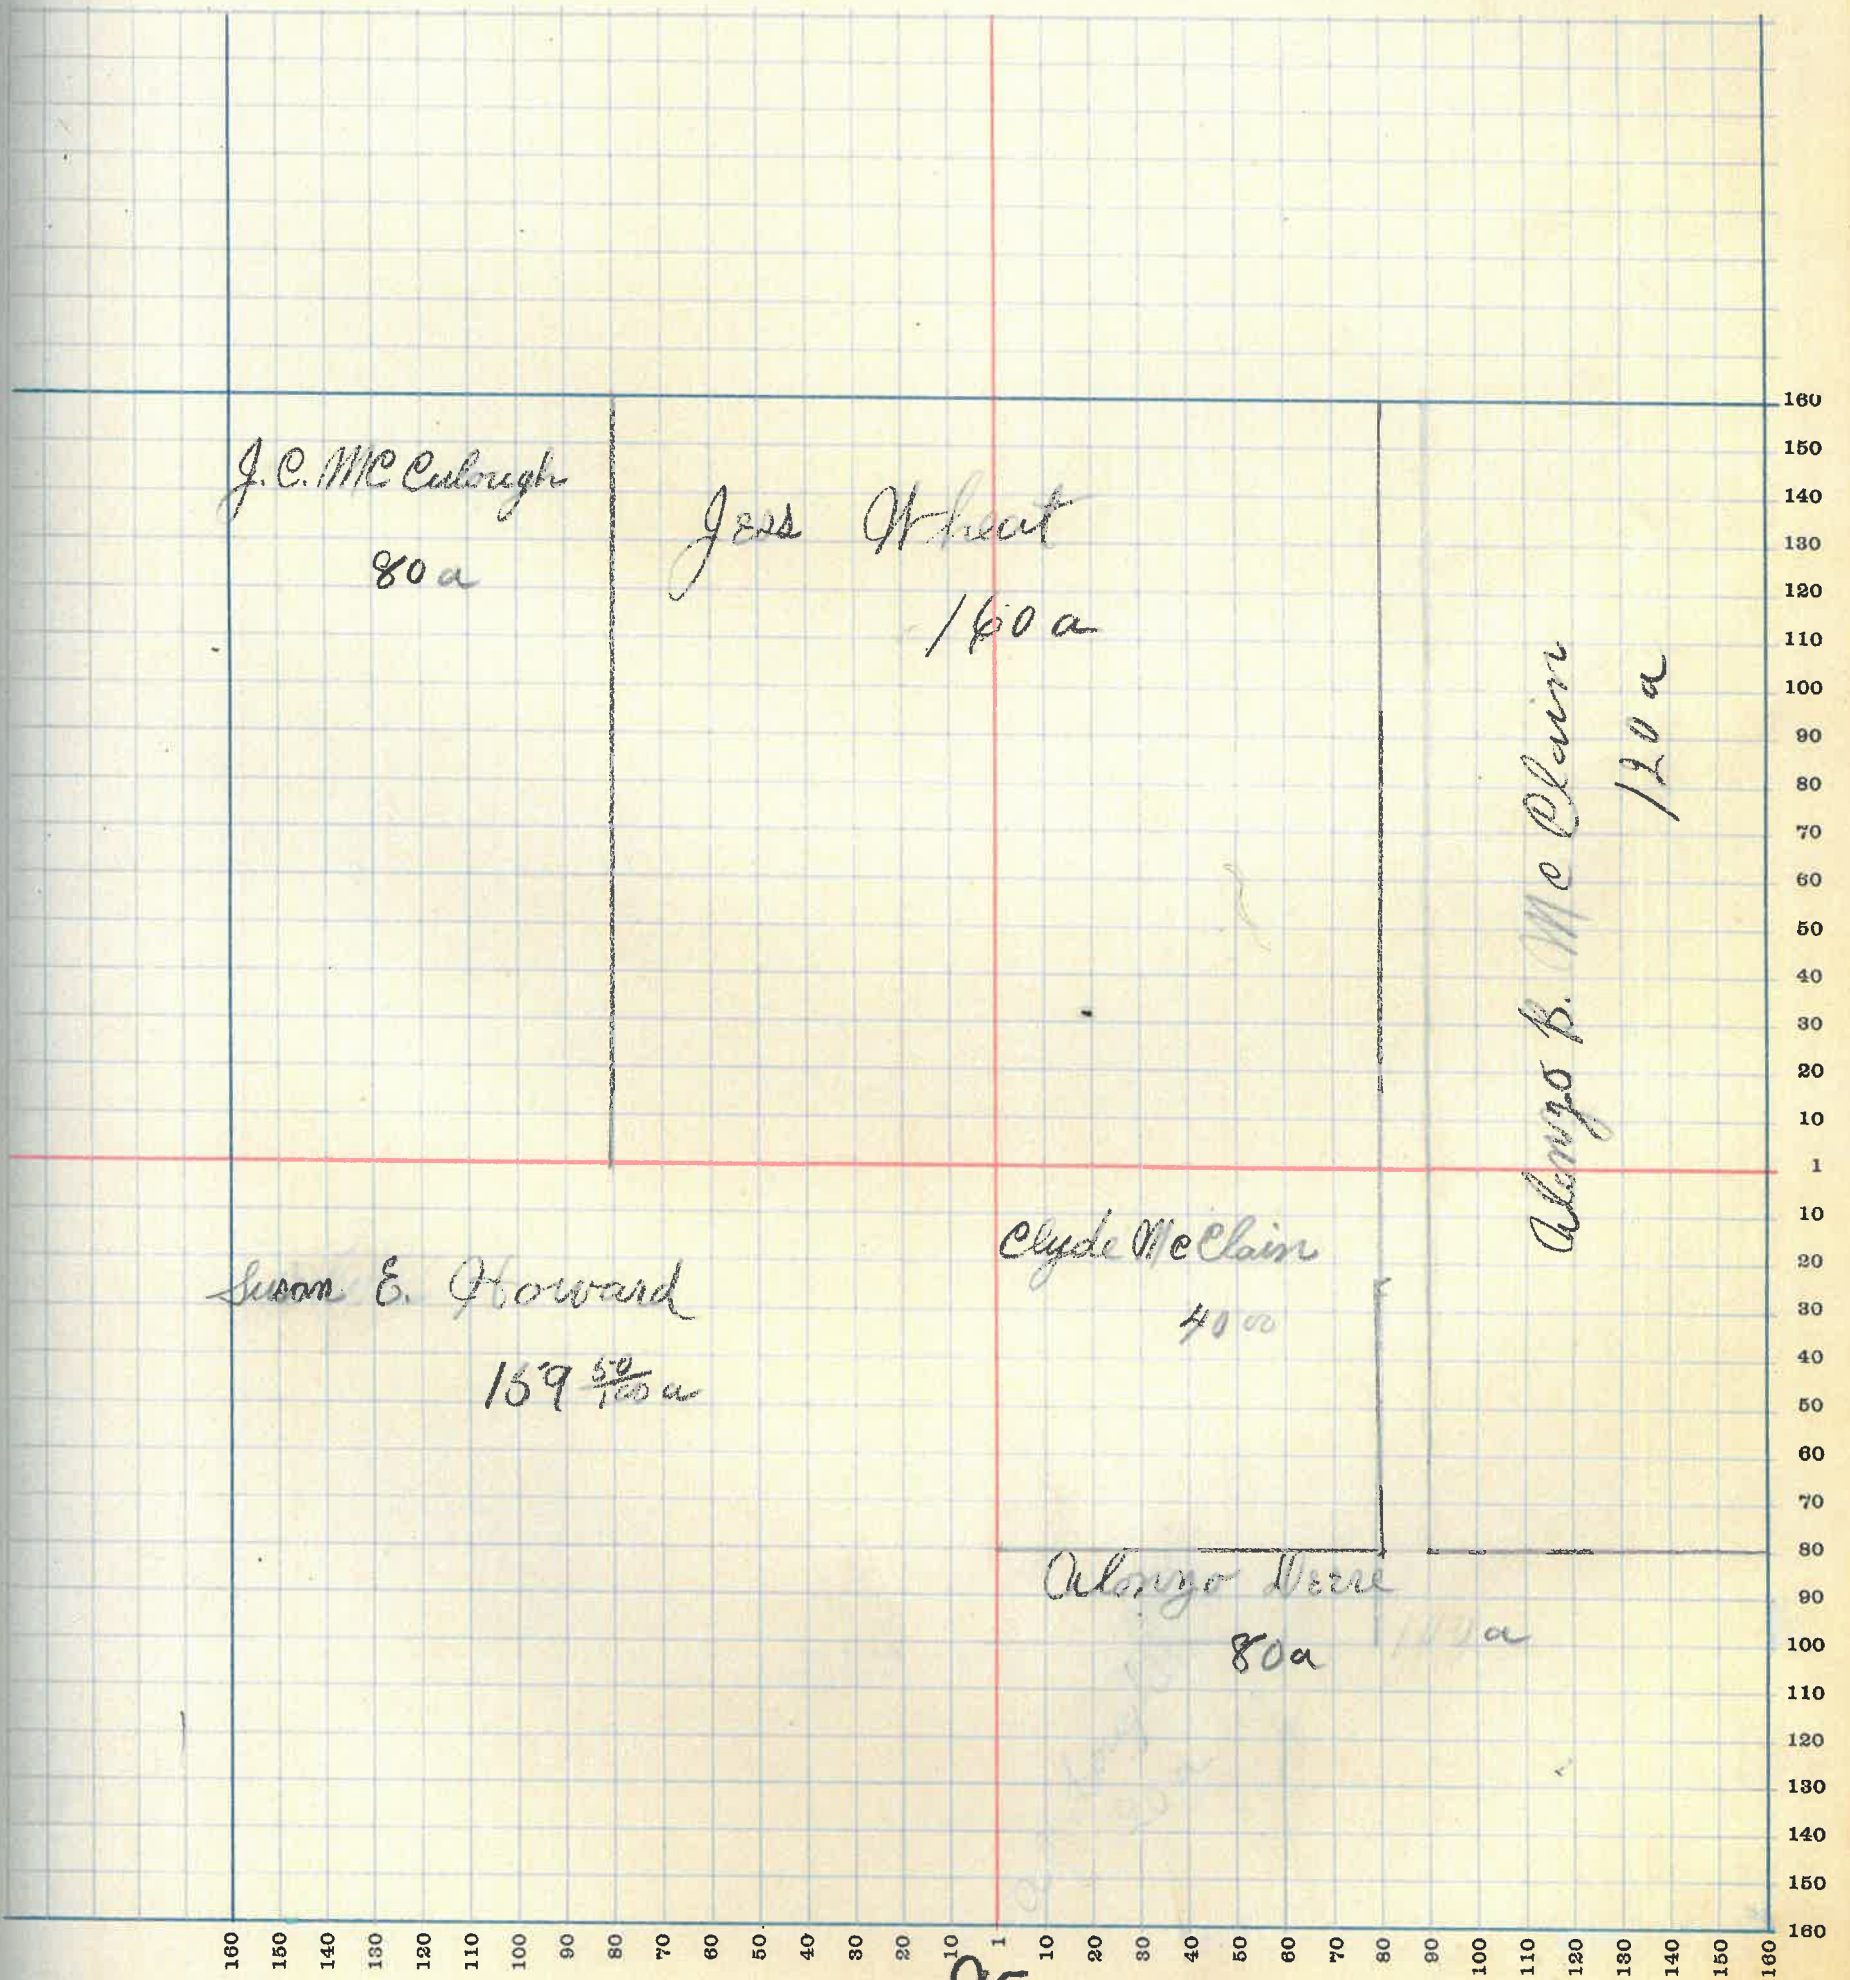 J.C. McCulough
80 a
Jess Wheat
160 a
Alonzo B. McClain
120 a
Susan E. Howard
159 50/100 a
Clyde McClain
40 00
Alonzo
80a
a
160
150
140
130
120
110
100
90
80
70
60
50
40
30
20
10
1
10
20
30
40
50
60
70
80
90
100
110
120
130
140
150
160
160 150 140 130 120 110 100 90 80 70 60 50 40 30 20 10 1 10 20 30 40 50 60 70 80 90 100 110 120 130 140 150 160